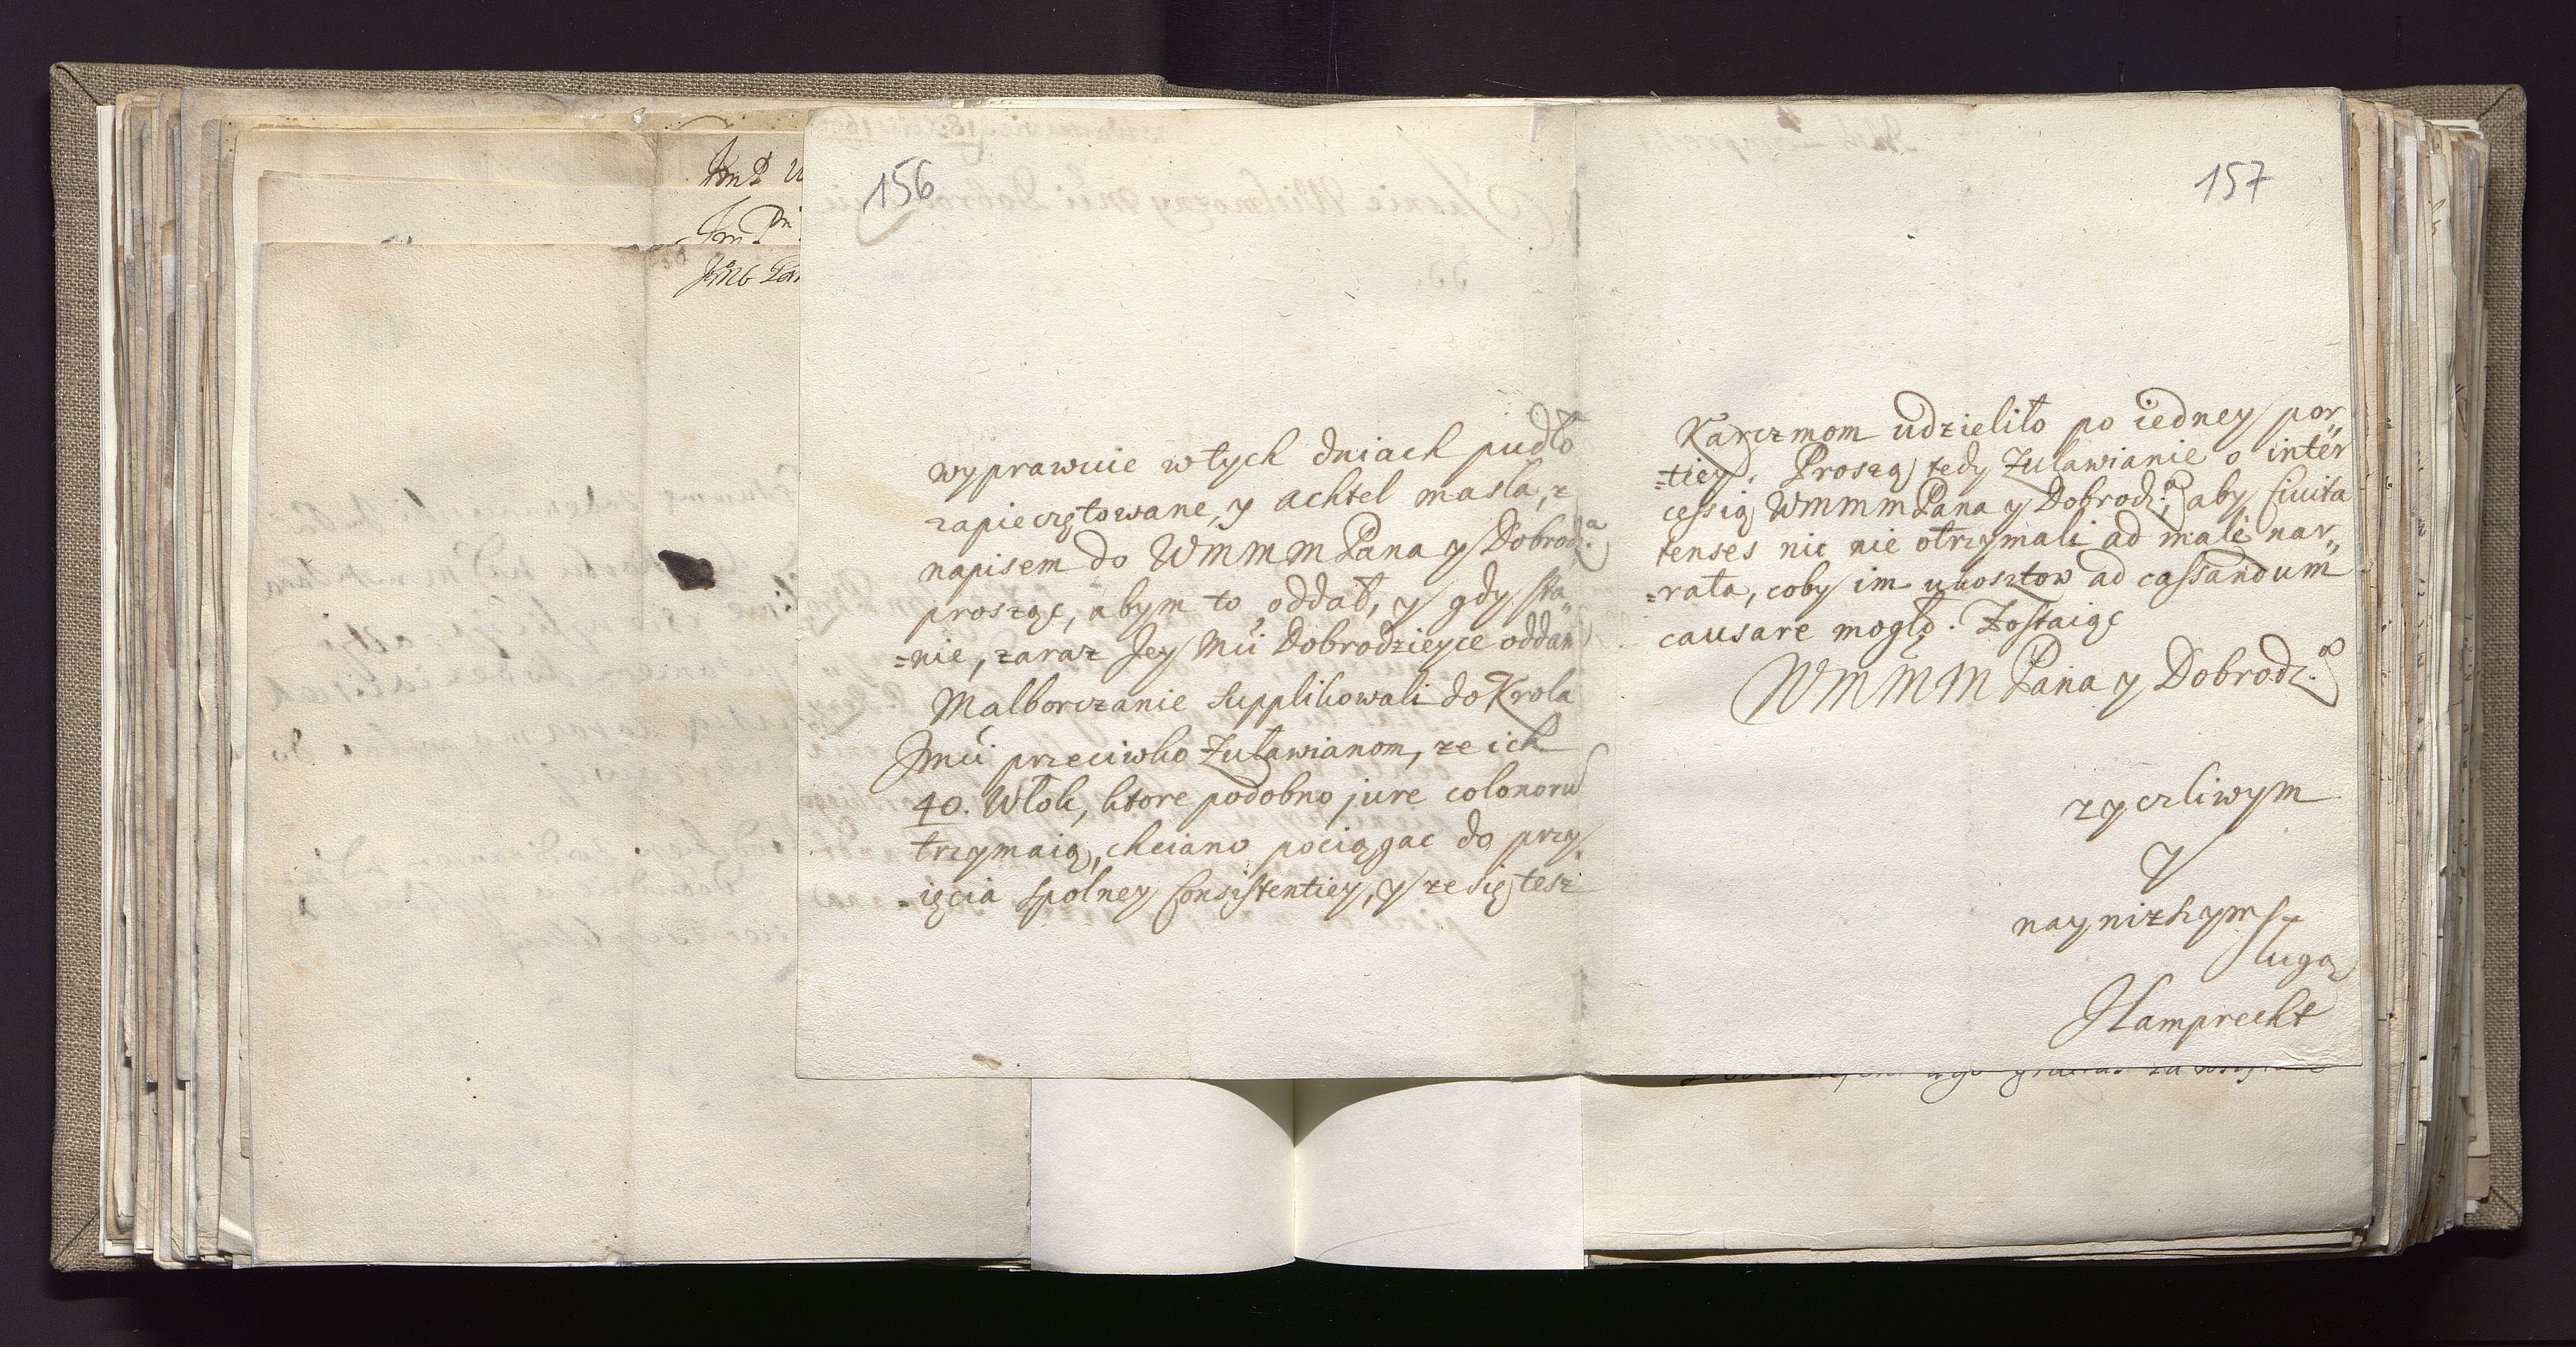 156
wyprawuie w tych dniach pudło
zapieczętowane, y achtel masla, z
napisem do WMMMPana y Dobrodz:ᵃ
prosząc, abym to oddał, y gdy sta„
=nie, zaraz Jey Mci Dobrodzieyce oddam
Malborczanie supplikowali do Krola
Jmci przeciwko Zuławianom, ze ich
40. Włok, ktore podobno jure colonorū
trzymaią, chciano pociągac do przy„
=ięcia spolney Consistentiey, y ze się tesz
157
Karczmom udzieliło po iedney por„
=tiey. Proszą tedy Zuławianie o inter
cessią WMMMPana y Dobrodz:ᵃ, aby Civita
tenses nic nie otrzymali ad male nar„
=rata, coby im ukosztow ad cassandum
causare mogło. Zostaiąc
WMMMPana y Dobrodz:ᵃ
zyczliwym
y
naynizszym
sługą
JLamprecht
Jm P
Jm Pn